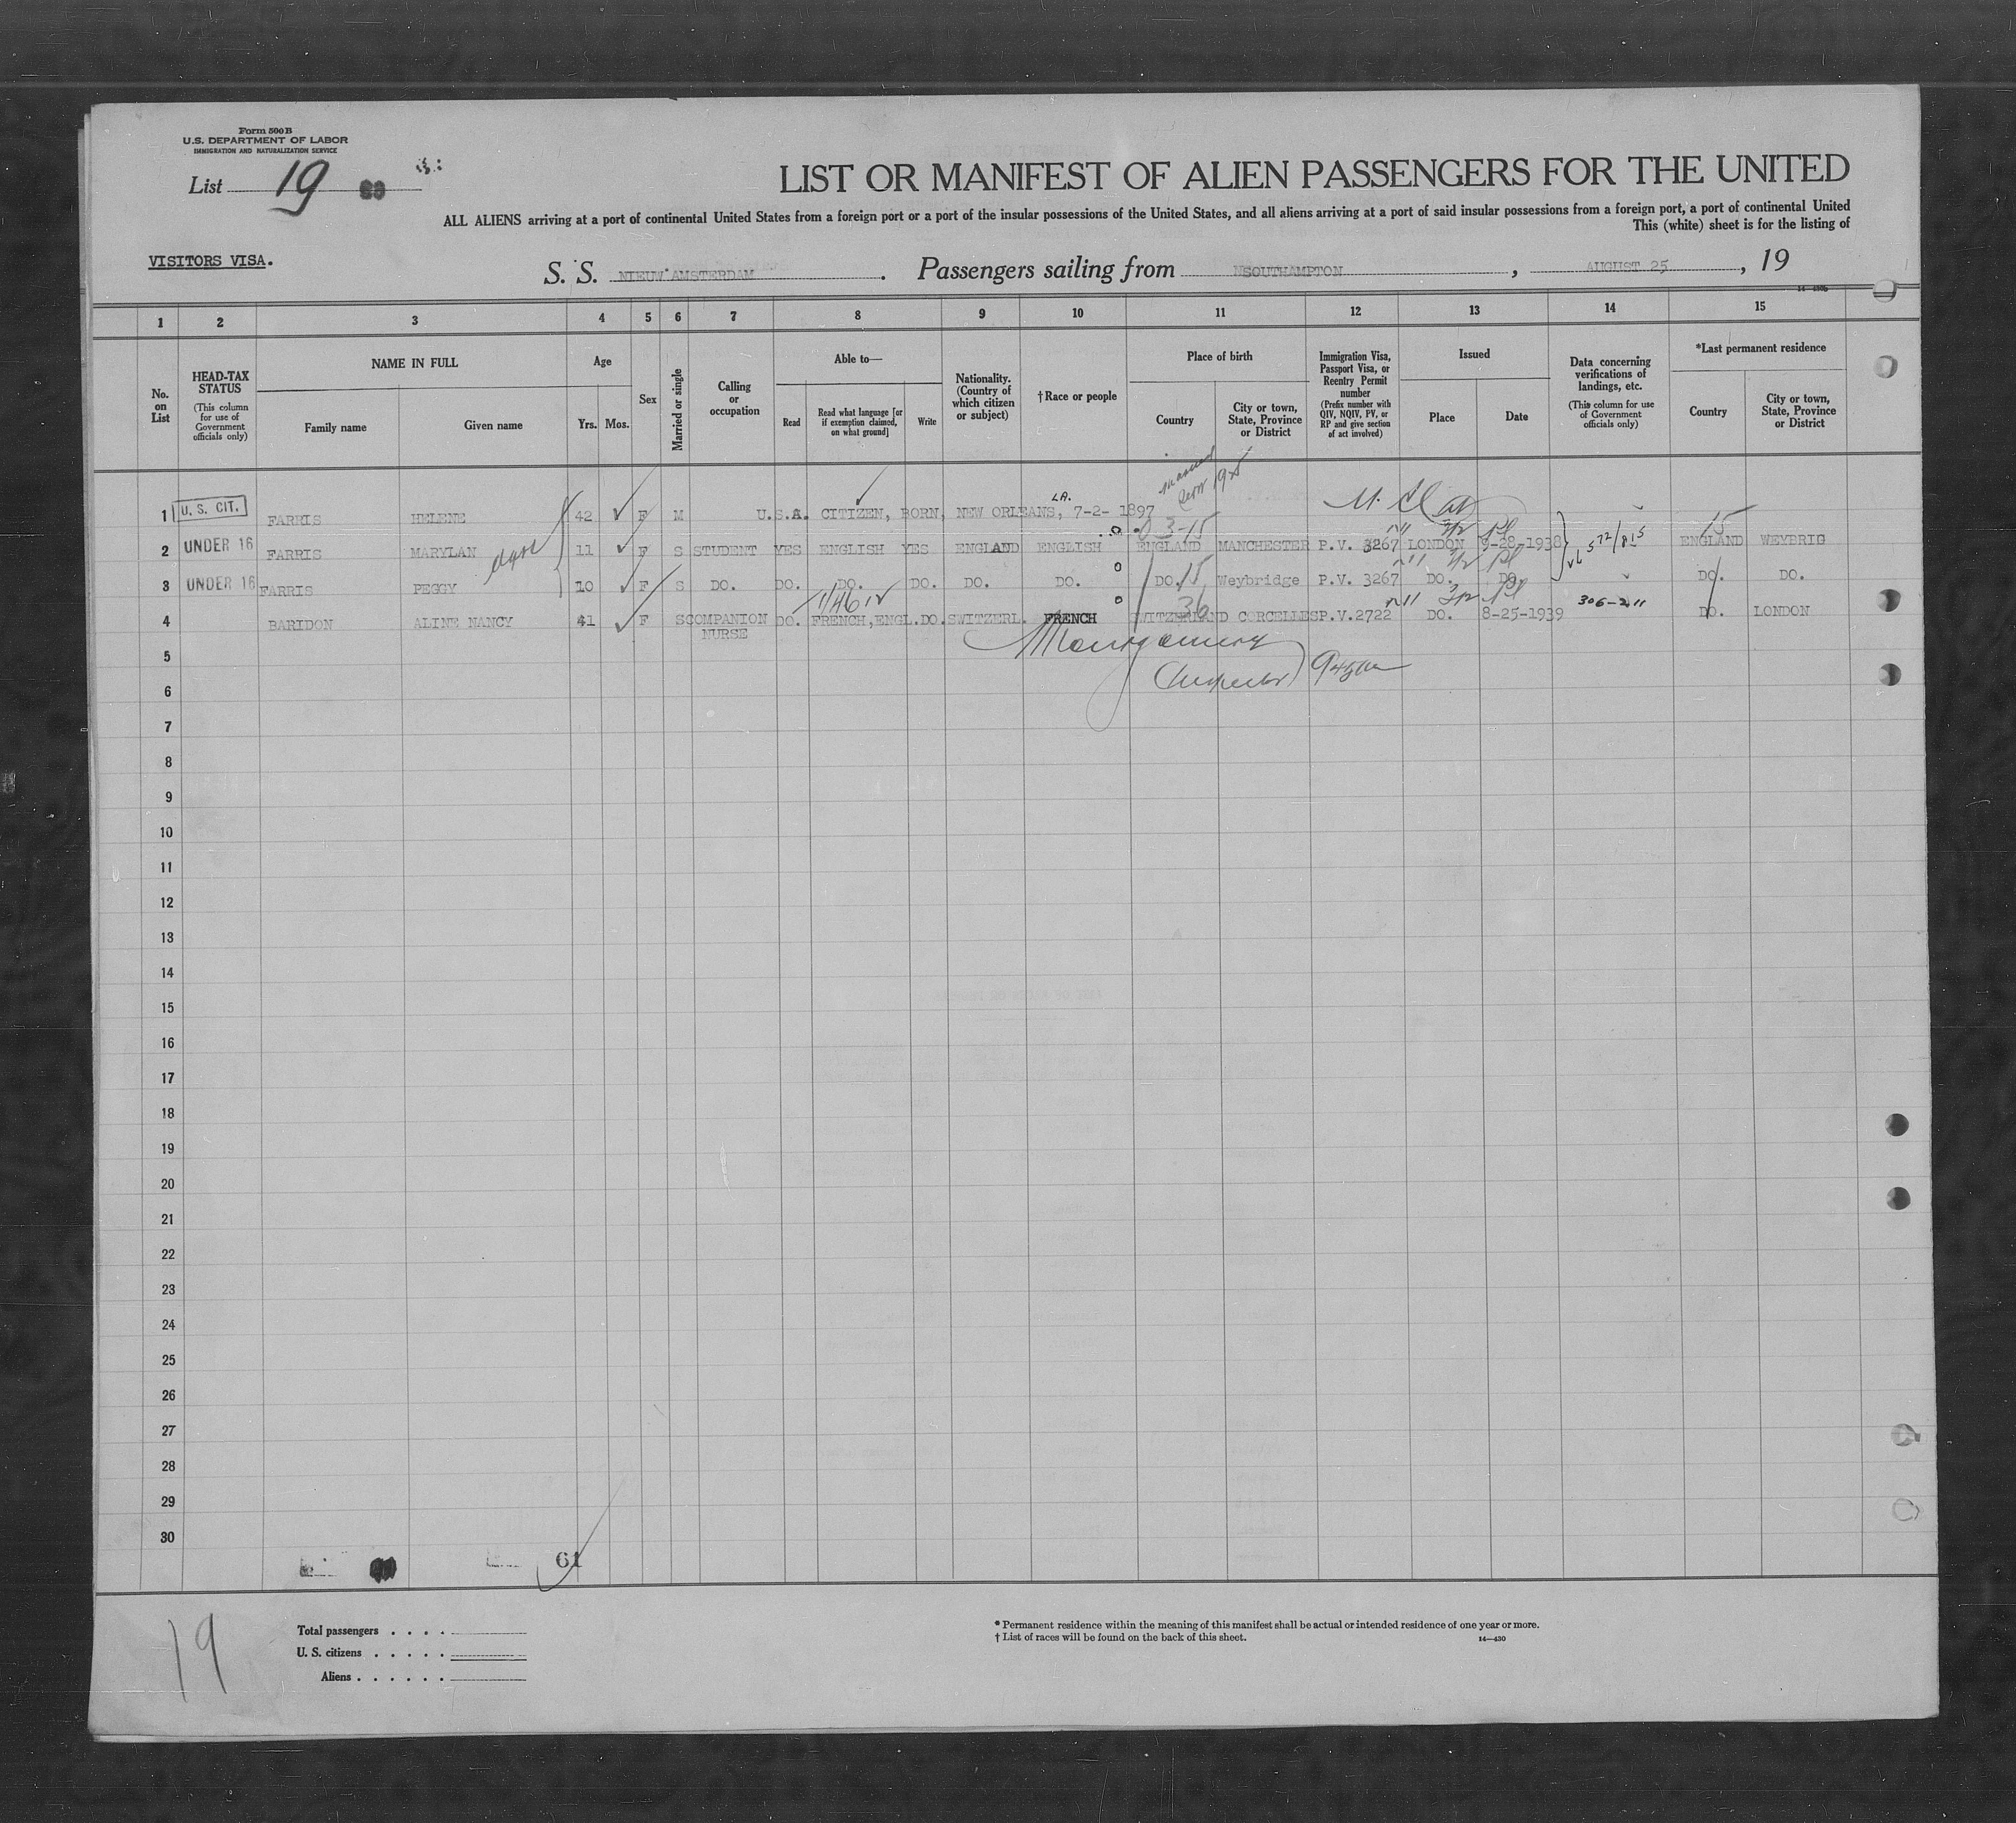 Form 500 B
U.S. DEPARTMENT OF LABOR
IMMIGRATION AND NATURALIZATION SERVICE
List 19
LIST OR MANIFEST OF ALIEN PASSENGERS FOR THE UNITED
ALL ALIENS arriving at a port of continental United States from a foreign port or a port of the insular possessions of the United States, and all aliens arriving at a port of said insular possessions from a foreign port, a port of continental United
This (white) sheet is for the listing of
VISITORS VISA.
S. S. NIEUW AMSTERDAM. Passengers sailing from SOUTHAMPTON, AUGUST 25, 19
1 2 3 4 5 6 7 8 9 10 11 12 13 14 15
No. on List
HEAD-TAX STATUS
(This column for use of Government officials only)
NAME IN FULL
Family name Given name
Age
Yrs. Mos.
Sex
Married or single
Calling or occupation
Able to—
Read
Read what language [or if exemption claimed, on what ground]
Write
Nationality. (Country of which citizen or subject)
†Race or people
Place of birth
Country
City or town, State, Province or District
Immigration Visa, Passport Visa, or Reentry Permit number
(Prefix number with QIV, NQIV, PV, or RP and give section of act involved)
Issued
Place Date
Data concerning verifications of landings, etc.
(This column for use of Government officials only)
*Last permanent residence
Country
City or town, State, Province or District
LA.
1 U. S. CIT. FARRIS HELENE 42 F M U.S.A. CITIZEN, BORN, NEW ORLEANS, 7-2- 1897
3-15 15
2 UNDER 16 FARRIS MARYLAN 11 F S STUDENT YES ENGLISH YES ENGLAND ENGLISH ENGLAND MANCHESTER P.V. 3267 LONDON 9-28-1938 572/815 ENGLAND WEYBRIG
15
3 UNDER 16 FARRIS PEGGY 10 F S DO. DO. DO. DO. DO. DO. DO. Weybridge P.V. 3267 DO. DO. DO. DO.
36 306-211
4 BARIDON ALINE NANCY 41 F S COMPANION DO. FRENCH,ENGL. DO. SWITZERL. FRENCH SWITZERLAND CORCELLES P.V.2722 DO. 8-25-1939 DO. LONDON
NURSE
Montgomery
5
6
7
8
9
10
11
12
13
14
15
16
17
18
19
20
21
22
23
24
25
26
27
28
29
30
61
19
Total passengers . . . .
U. S. citizens . . . . .
Aliens . . . . . .
* Permanent residence within the meaning of this manifest shall be actual or intended residence of one year or more.
† List of races will be found on the back of this sheet.
14—430